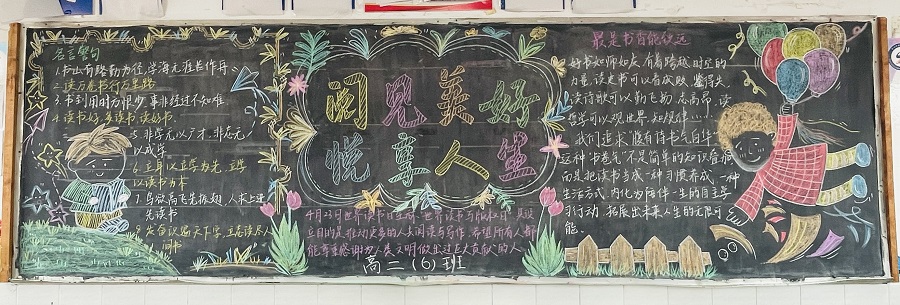 名言警句
1.书山有路勤为径,学海无涯苦作舟
2.读万卷书行万里路
3.书到用时方恨少 事非经过不知难
4.读书好,多读书,读好书.
5.非学无以广才,非志无
以成学
6.立身以立学为先,立学
以读书为本
7.鸟欲高飞先振翅,人求上进
先读书
8.发奋识遍天下字,立志读尽人
间书
阅见美好
悦享人生
4月23日世界读书日
立目的是推动更多的人去阅读与写作,希望所有人都
能尊重感谢为人类文明做出过巨大贡献的人
高二(6)班
最是书香能致远
好书如师如友,有着跨越时空的
力量,读史书可以看成败、鉴得失,
读诗歌可以勤飞扬、志高昂,读
哲学可以观世界、知规律……
我们追求“腹有诗书气自华”
这种“书卷气”不是简单的知识叠加
而是把读书当成一种习惯养成,一种
生活方式,内化为陪伴一生的自主学
习行动,拓展出未来人生的无限可
能.